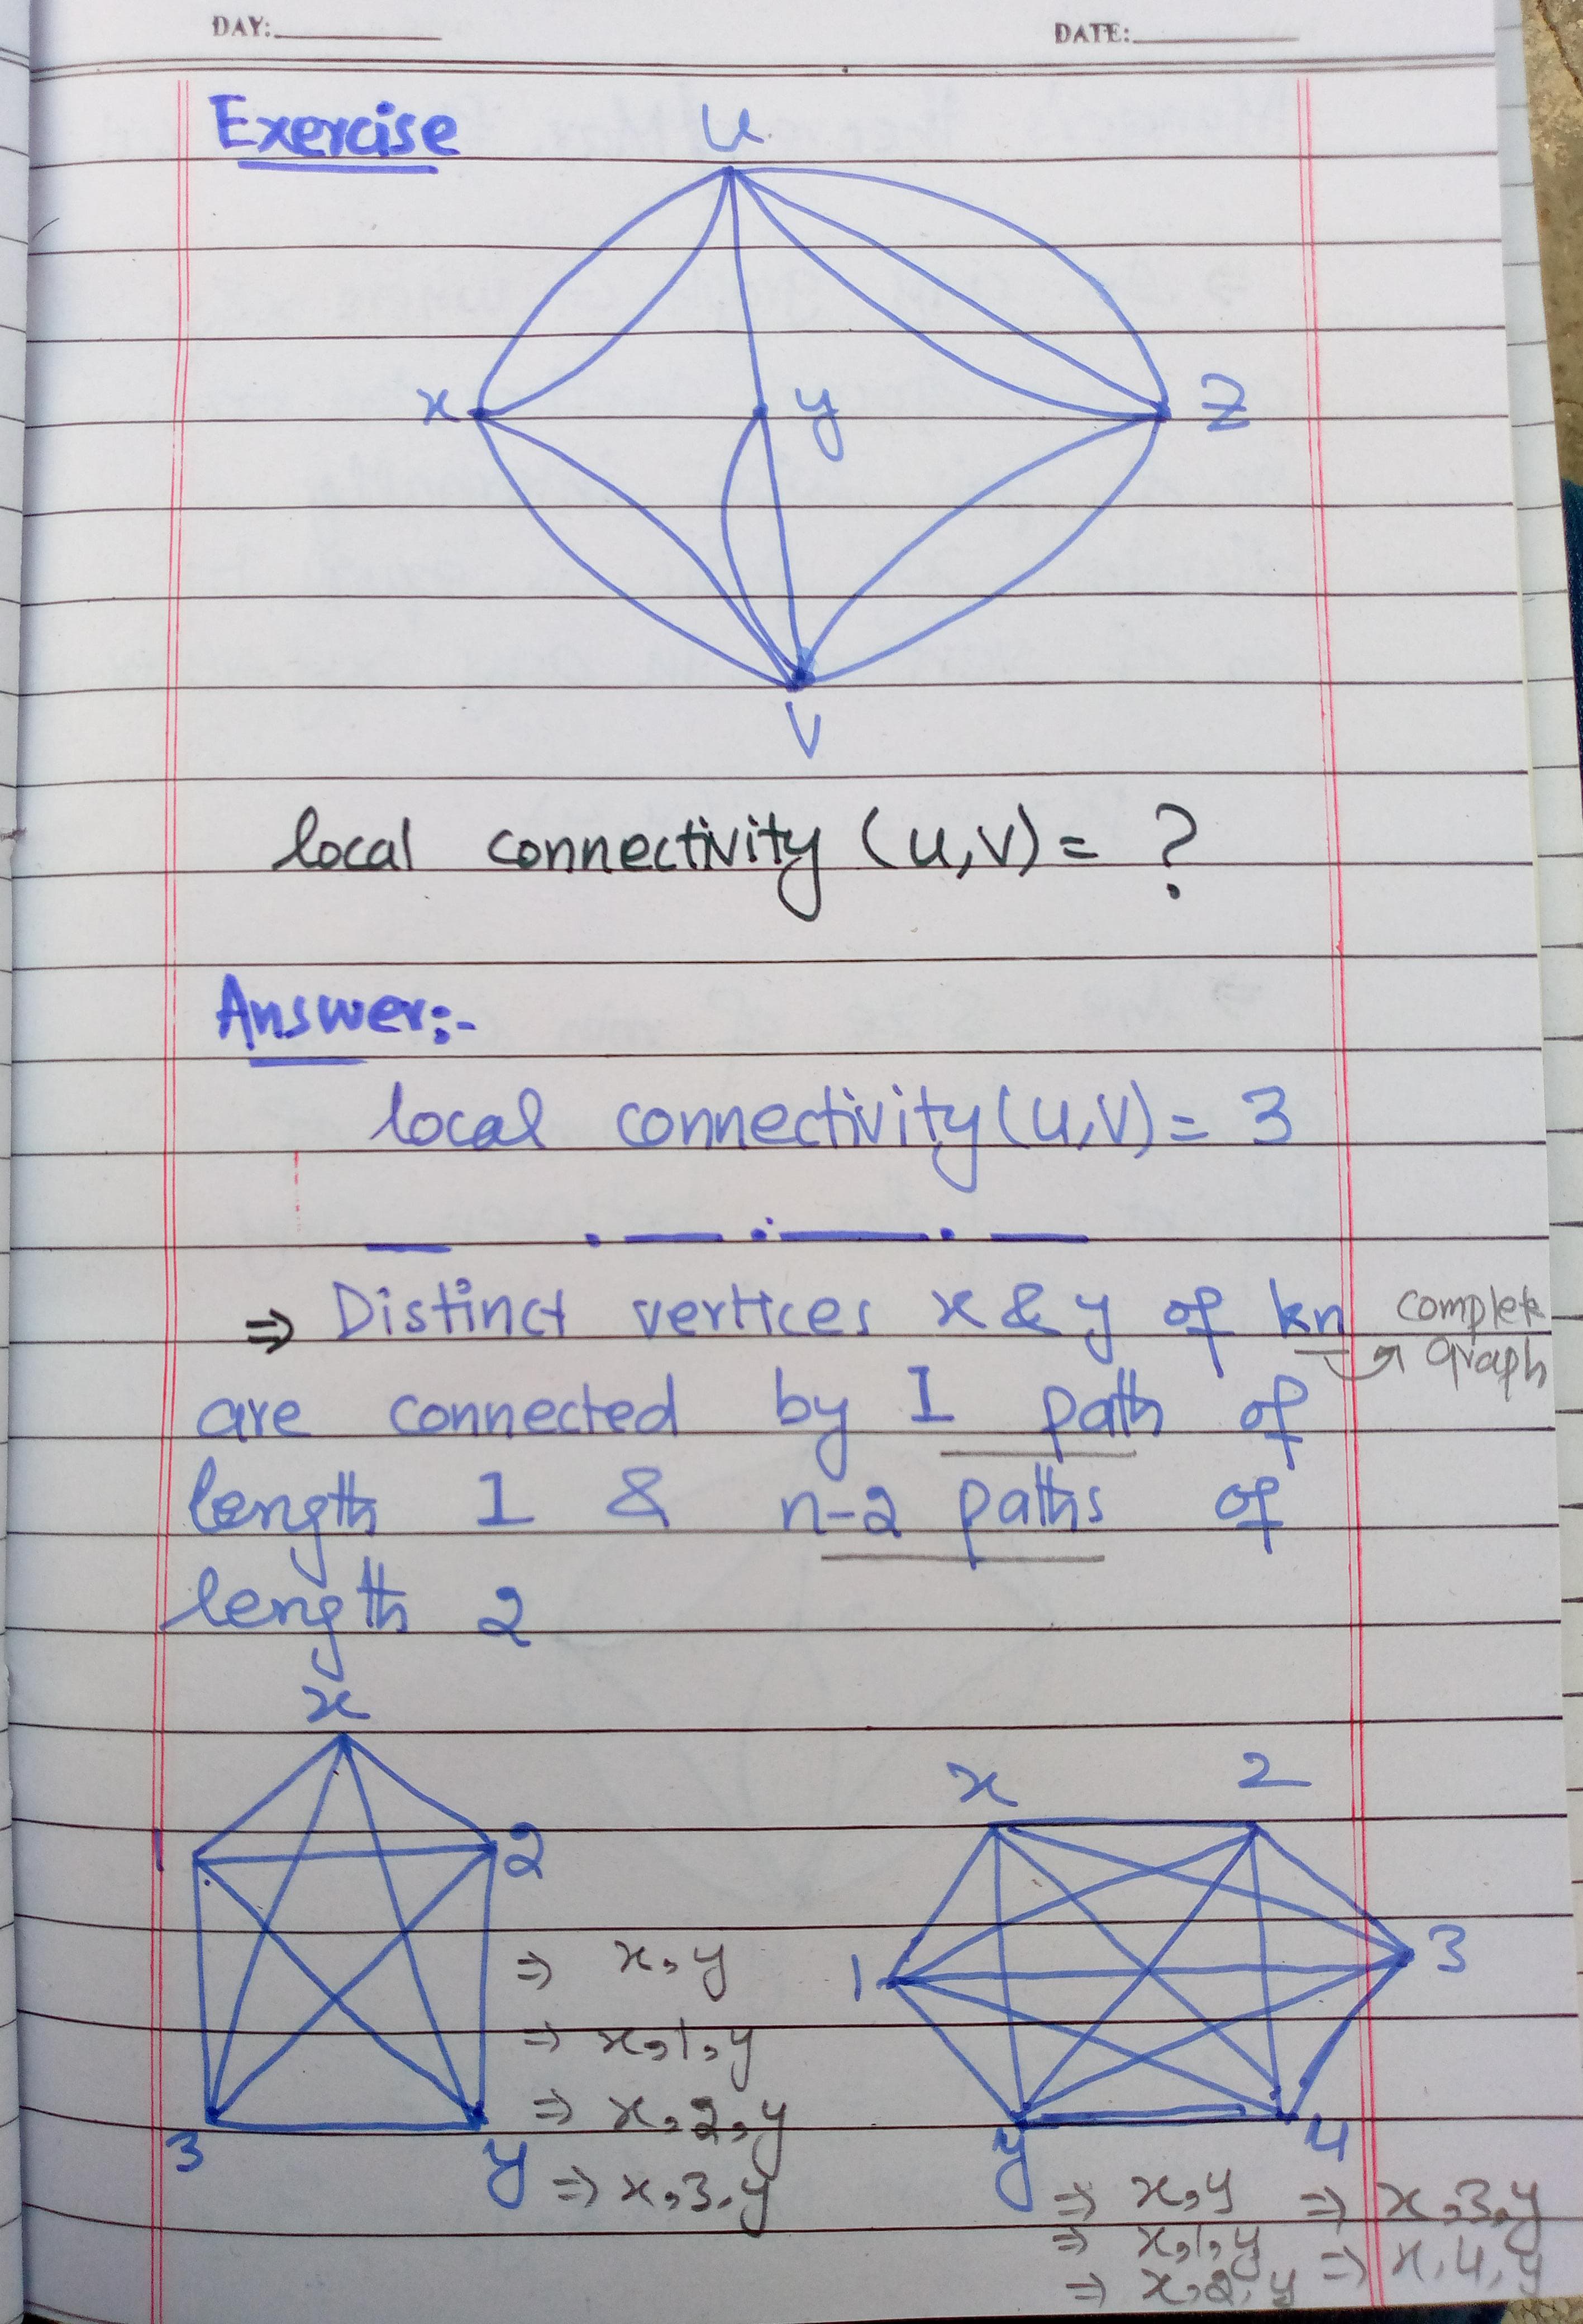 DAY: DATE:
Exercise
u
x y Z
V
local connectivity (u,v) = ?
Answer:-
local connectivity (u,v) = 3
⇒ Distinct vertices x & y of kn complete
graph
are connected by 1 path of
length 1 & n-2 paths of
length 2
x
1 2
3 y
⇒ x,y
⇒ x,1,y
⇒ x,2,y
⇒ x,3,y
x 2
1 3
y 4
⇒ x,y ⇒ x,3,y
⇒ x,1,y ⇒ x,4,y
⇒ x,2,y